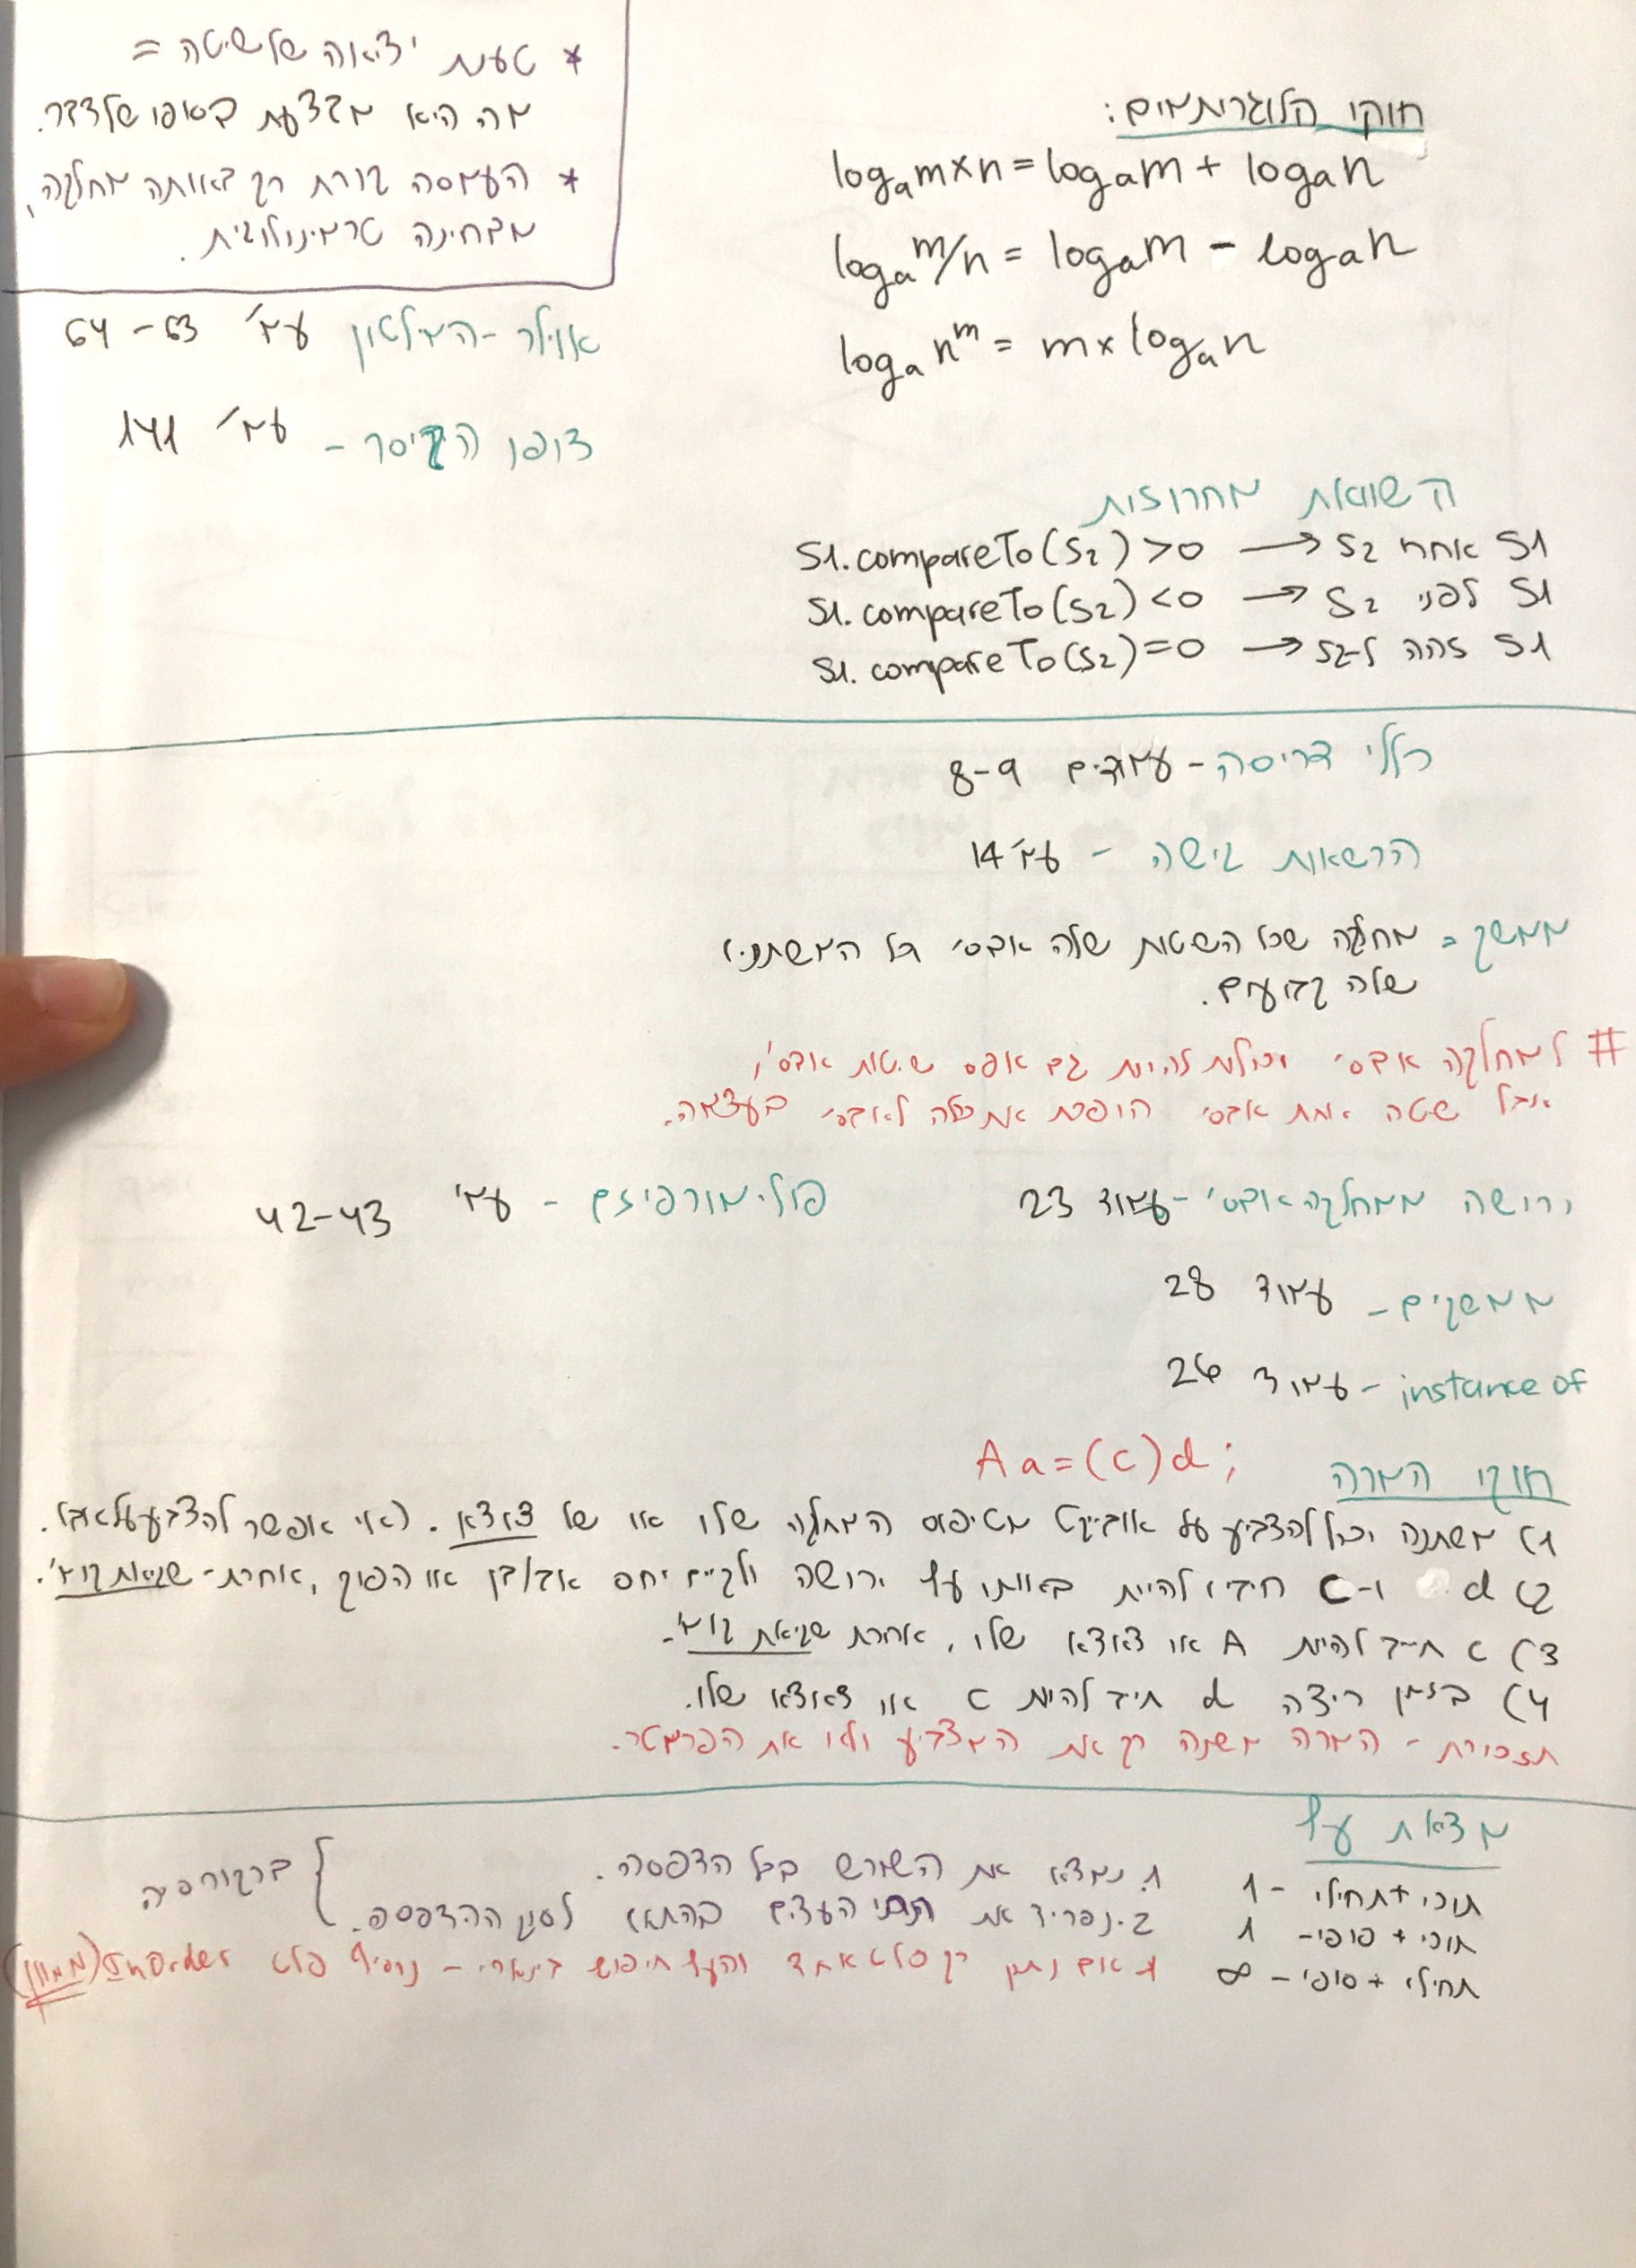 * טענת יציאה של שיטה =
מה היא מבצעת בסופו של דבר.
* העמסה קורת רק באותה מחלקה,
מבחינה טרמינולוגית.
אוילר-המילטון עמ' 63-64
דופן הקיסר - עמ' 141
חוקי הלוגריתמים:
logₐm×n = logₐm + logₐn
logₐm/n = logₐm - logₐn
logₐnᵐ = m×logₐn
השוואת מחרוזות
S1.compareTo(S2) >0 → S1 אחרי S2
S1.compareTo(S2) <0 → S1 לפני S2
S1.compareTo(S2)=0 → S1 זהה ל-S2
כללי דריסה - עמודים 8-9
הרשאות גישה - עמ' 14
ממשק = מחלקה שכל השיטות שלה אבס' וכל המשתנים
שלה קבועים.
# למחלקה אבס' יכולות להיות גם אפס שיטות אבס',
אבל שיטה אחת אבס' הופכת את כולה לאבס' בעצמה.
ירושה ממחלקה אבס' - עמוד 23
פולימורפיזם - עמ' 42-43
ממשקים - עמוד 28
instance of - עמוד 26
חוקי המרה A a=(c)d;
1) משתנה יכול להצביע על אובייקט מטיפוס המחלקה שלו או של צאצא. (אי אפשר להצביע על אב).
2) d ו-C חייבים להיות באותו עץ ירושה ולקיים יחס אב/בן או הפוך, אחרת - שגיאת קומ'.
3) c חייב להיות A או צאצא שלו, אחרת שגיאת קומ'.
4) בזמן ריצה d חייב להיות c או צאצא שלו.
תזכורת - המרה משנה רק את המצביע ולא את הפרמטר.
מציאת עץ
תוכי+תחילי - 1
תוכי + סופי - 1
תחילי + סופי - ∞
1. נמצא את השורש בכל הדפסה.
2. נפריד את תתי העצים בהתאם לסוג ההדפסה.
} ברקורסיה
* אם נתון רק פלט אחד והעץ חיפוש בינארי - נוסיף פלט InOrder (ממוין)